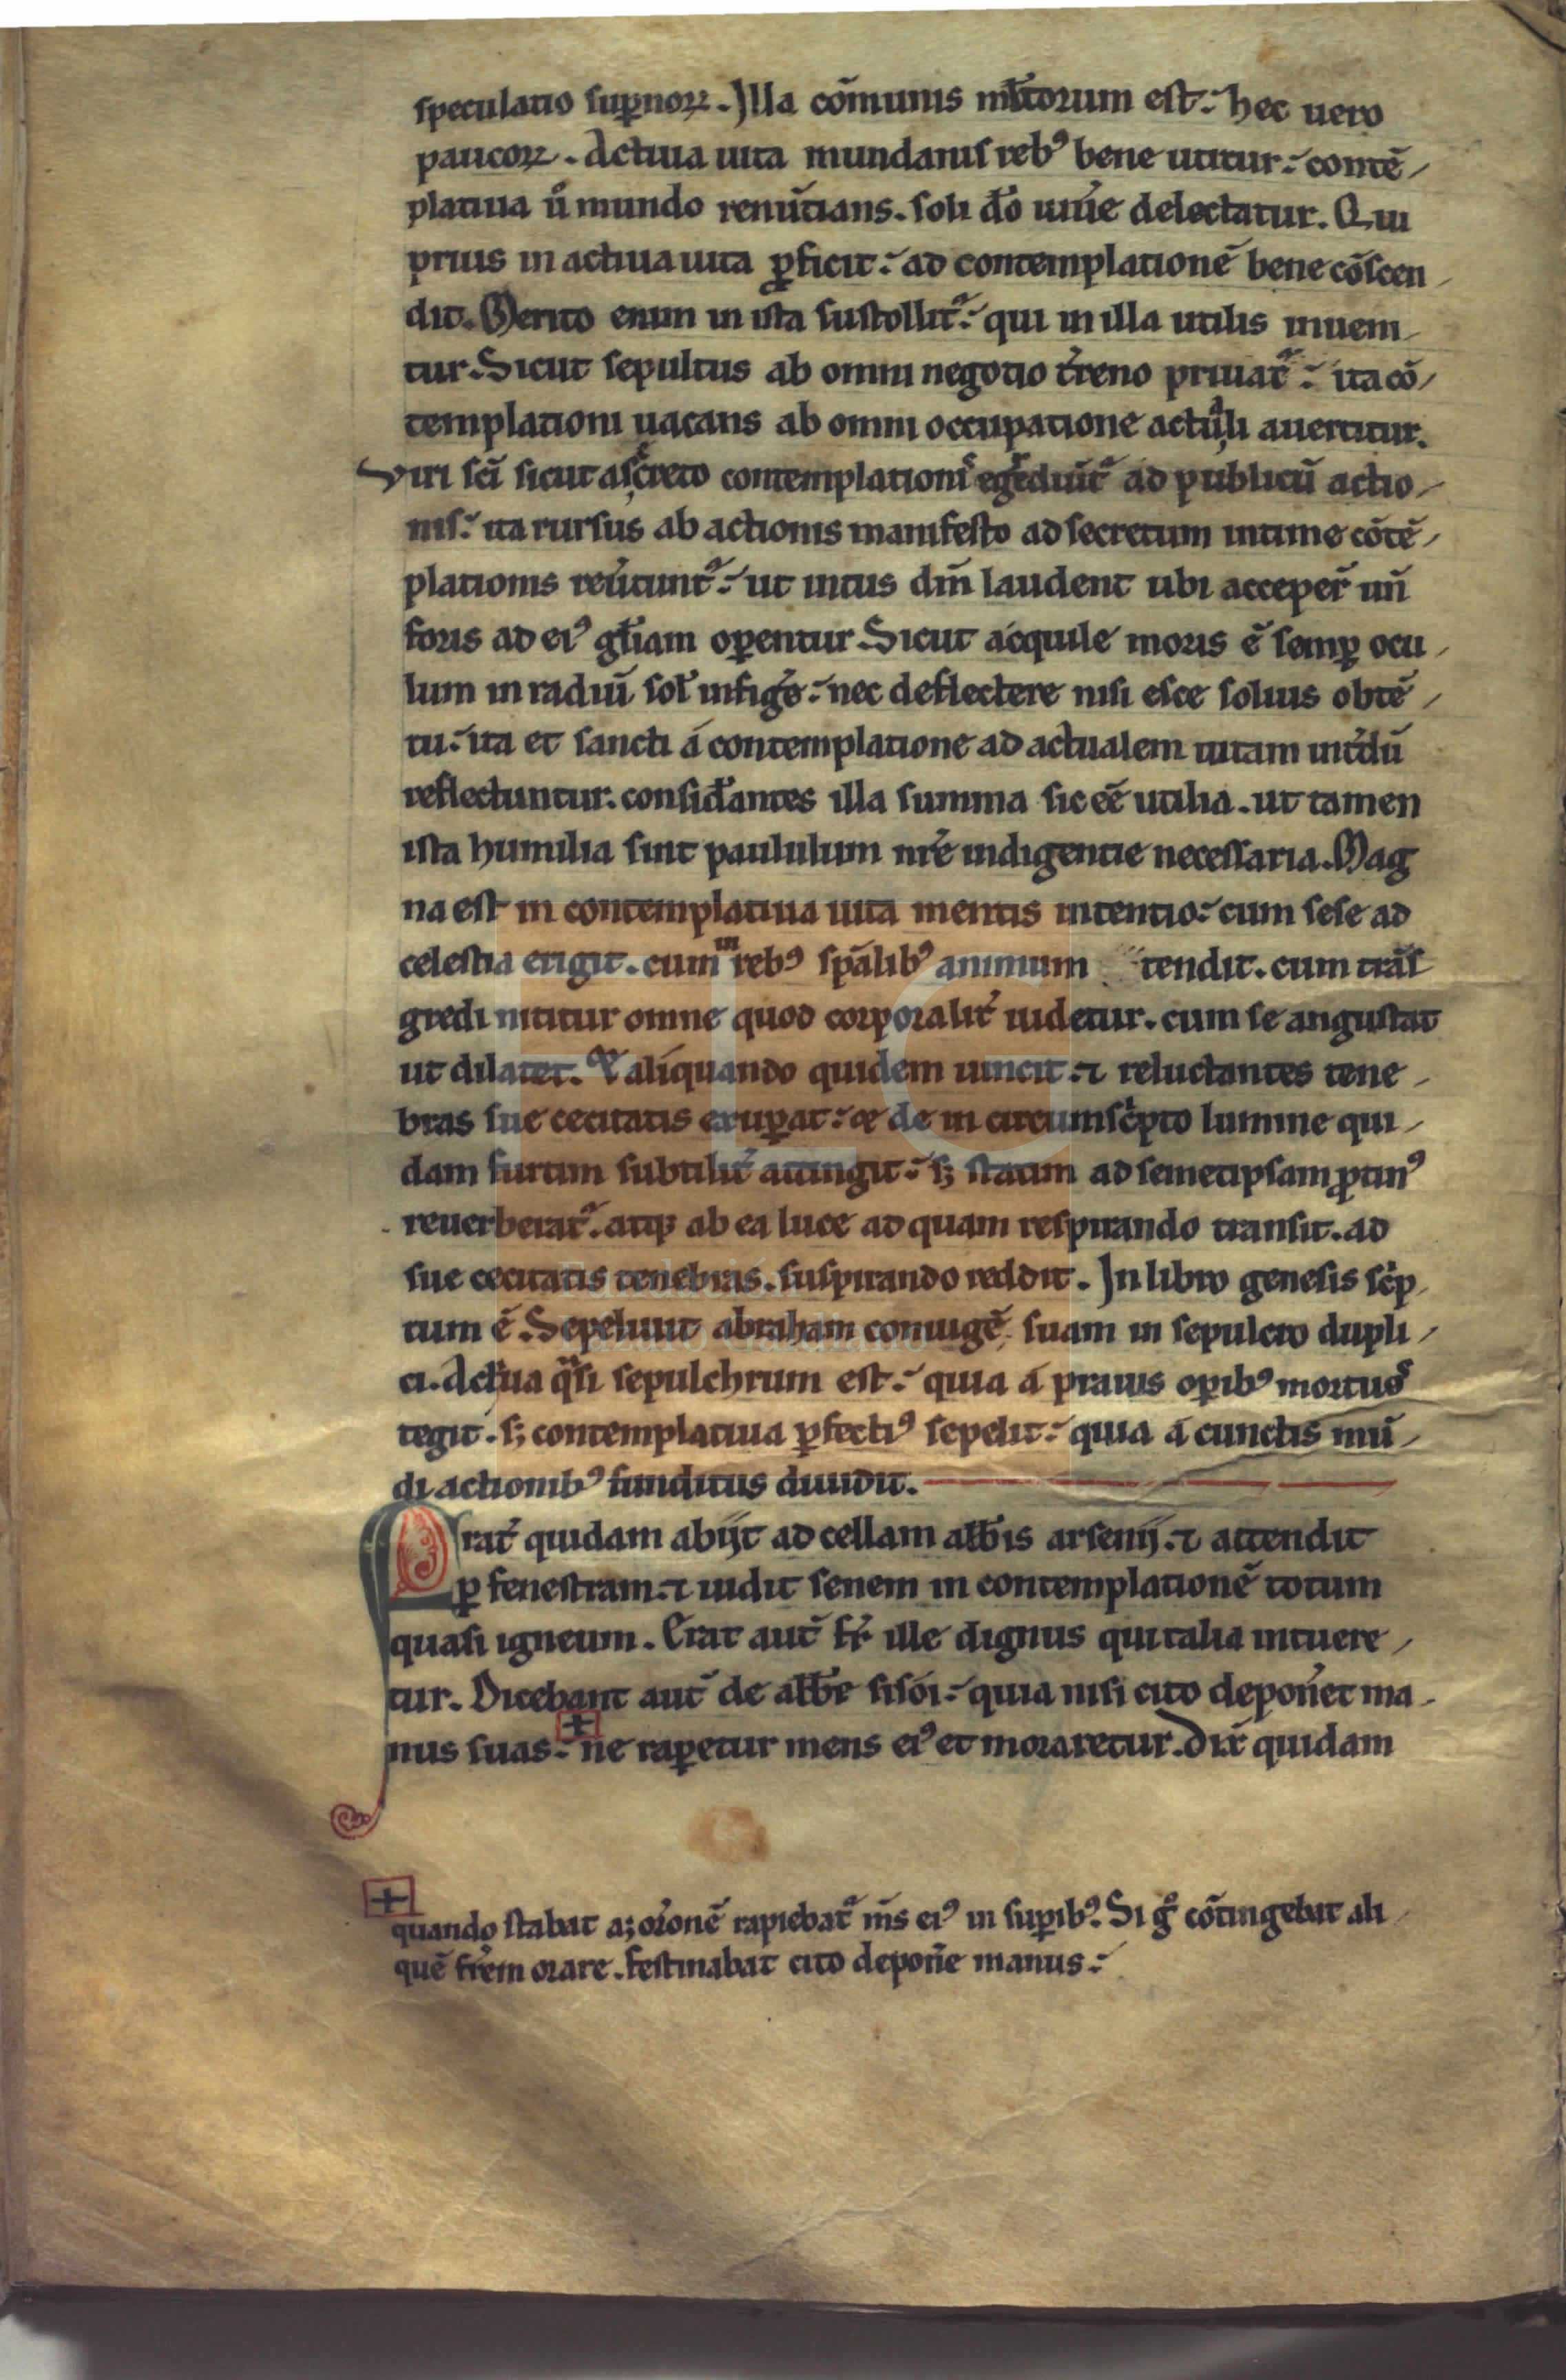 speculatio suꝑnoꝝ. Illa cõmunis ml̃torum est: hec uero
paucoꝝ. Actiua uita mundanis rebꝰ bene utitur: contẽ
platiua ũ mundo renũtians. soli dõ uiũe delectatur. Qui
prius in actiua uita ꝓficit: ad contemplationẽ bene cõscen
dit. Merito enim in ista sustollit᷑: qui in illa utilis inueni
tur. Sicut sepultus ab omni negotio t̃reno priuat᷑: ita cõ
templationi uacans ab omni occupatione actuali auertitur.
Viri sc̃i sicut a sc̃reto contemplationis egrediũt᷑ ad publicũ actio
nis: ita rursus ab actionis manifesto ad secretum intime cõtẽ
plationis reũtunt᷑: ut intus dm̃ laudent ubi acceper̃ uñ
foris ad eiꝰ gl̃iam oꝑentur. Sicut acquile moris ẽ semꝑ ocu
lum in radiũ sol̃ infige: nec deflectere nisi esce solius obtẽ
tu: ita et sancti á contemplatione ad actualem uitam int̃dũ
reflectuntur. consid̃antes illa summa sic eẽ utilia. ut tamen
ista humilia sint paululum nr̃e indigentie necessaria. Mag
na est in contemplatiua uita mentis intentio: cum sese ad
celestia erigit. cum in rebꝰ sp̃alibꝰ animum tendit. cum trãs
gredi nititur omne quod corporalit̃ uidetur. cum se angustat
ut dilatet. Et aliquando quidem uincit. ⁊ reluctantes tene
bras sue cecitatis exuꝑat: et de in circumsc̃pto lumine qui
dam furtim subtilit̃ attingit: sꝫ statim ad semetipsam ꝓtinꝰ
reuerberat᷑. atqꝫ ab ea luce ad quam respirando transit. ad
sue cecitatis tenebras. suspirando reddit. In libro genesis sc̃p
tum ẽ. Sepeliuit abraham coniugẽ suam in sepulcro dupli
ci. Actiua qͣsi sepulchrum est: quia á prauis oꝑibꝰ mortuos
tegit. sꝫ contemplatiua ꝑfectiꝰ sepelit: quia á cunctis mũ
di actionibꝰ funditus diuidit.
Frat̃ quidam abijt ad cellam abb̃is arsenij. ⁊ attendit
ꝑ fenestram. ⁊ uidit senem in contemplationẽ totum
quasi igneum. Erat aut̃ fr̃ ille dignus qui talia intuere
tur. Dicebant aut̃ de abb̃e sisoi: quia nisi cito depoñet ma
nus suas: + ne raꝑetur mens eiꝰ et moraretur. Dix̃ quidam
+
quando stabat aꝫ or̃onẽ rapiebat᷑ m̃s eiꝰ in suꝑibꝰ. Si gͦ cõtingebat ali
quẽ fr̃em orare. festinabat cito depoñe manus: